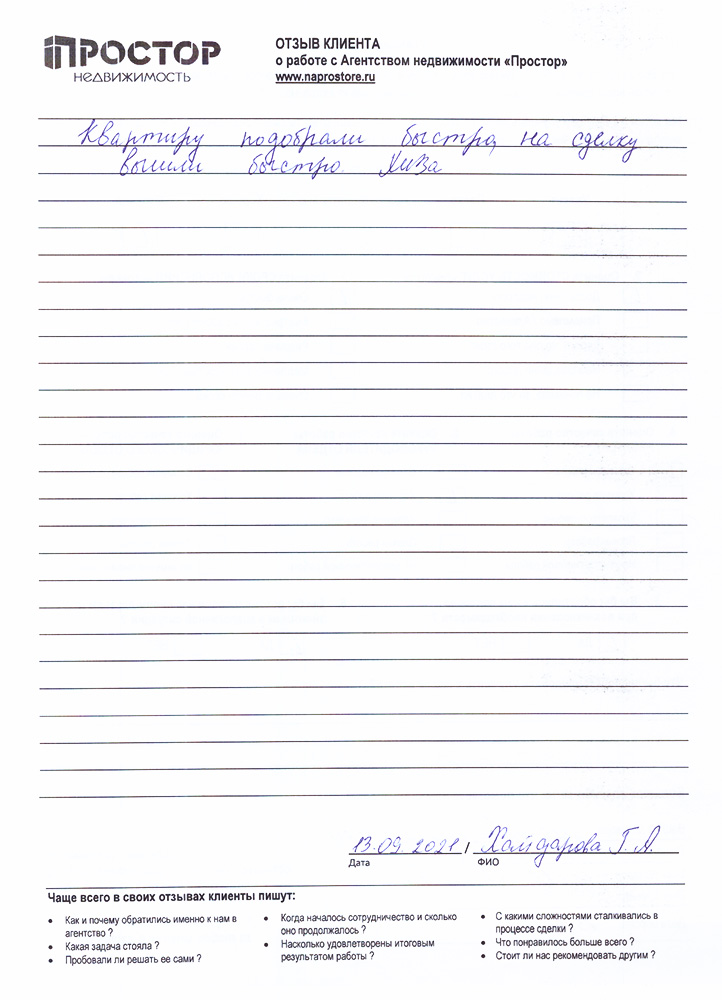 ПРОСТОР
НЕДВИЖИМОСТЬ
ОТЗЫВ КЛИЕНТА
о работе с Агентством недвижимости «Простор»
www.naprostore.ru
Квартиру подобрали быстро, на сделку
вышли быстро.
13.09.2021 / Хайдарова Г. А.
Дата ФИО
Чаще всего в своих отзывах клиенты пишут:
• Как и почему обратились именно к нам в
агентство ?
• Какая задача стояла ?
• Пробовали ли решать ее сами ?
• Когда началось сотрудничество и сколько
оно продолжалось ?
• Насколько удовлетворены итоговым
результатом работы ?
• С какими сложностями сталкивались в
процессе сделки ?
• Что понравилось больше всего ?
• Стоит ли нас рекомендовать другим ?